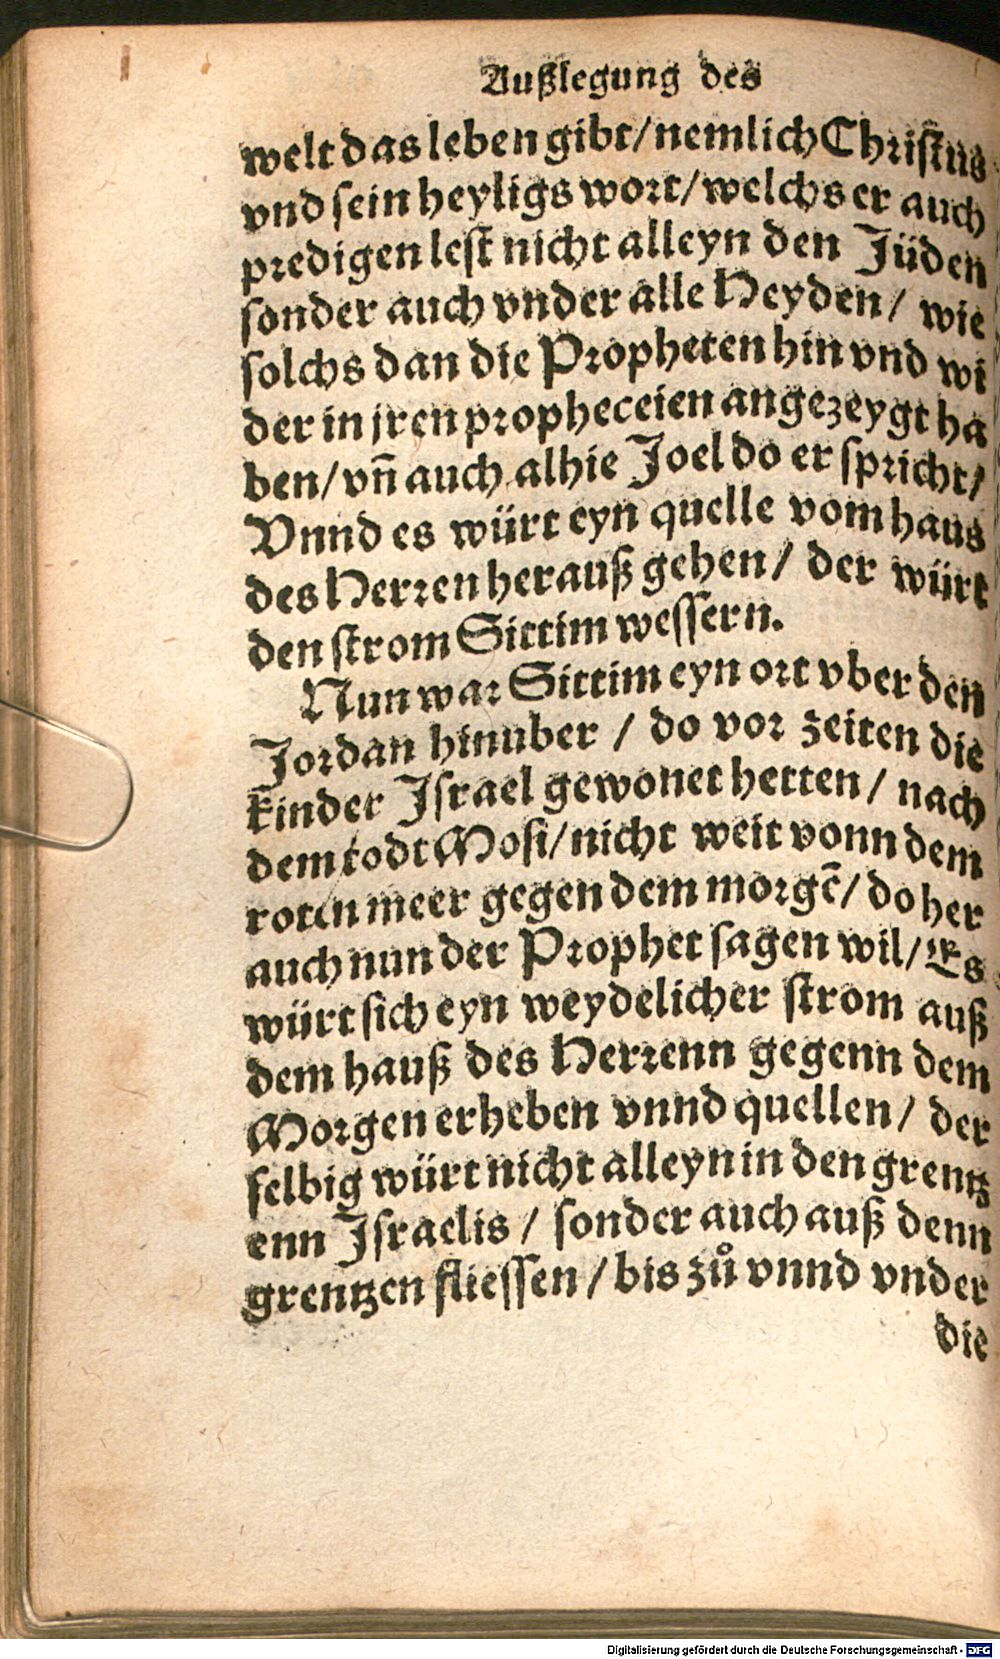 Außlegung des
welt das leben gibt/ nemlich Christus
vnd sein heyligs wort/ welchs er auch
predigen lest nicht alleyn den Jüden
sonder auch vnder alle Heyden/ wie
solchs dan die Propheten hin vnd wi
der in jren propheceien angezeygt ha
ben/ vn̄ auch alhie Joel do er spricht/
Vnnd es würt eyn quelle vom haus
des Herren herauß gehen/ der würt
den strom Sittim wessern.
Nun war Sittim eyn ort vber den
Jordan hinuber / do vor zeiten die
kinder Israel gewonet hetten/ nach
dem todt Mosi/ nicht weit vonn dem
roten meer gegen dem morgē/ do her
auch nun der Prophet sagen wil/ Es
würt sich eyn weydelicher strom auß
dem hauß des Herrenn gegenn dem
Morgen erheben vnnd quellen/ der
selbig würt nicht alleyn in den grentz
enn Israelis / sonder auch auß denn
grentzen fliessen / bis zů vnnd vnder
die
Digitalisierung gefördert durch die Deutsche Forschungsgemeinschaft - DFG